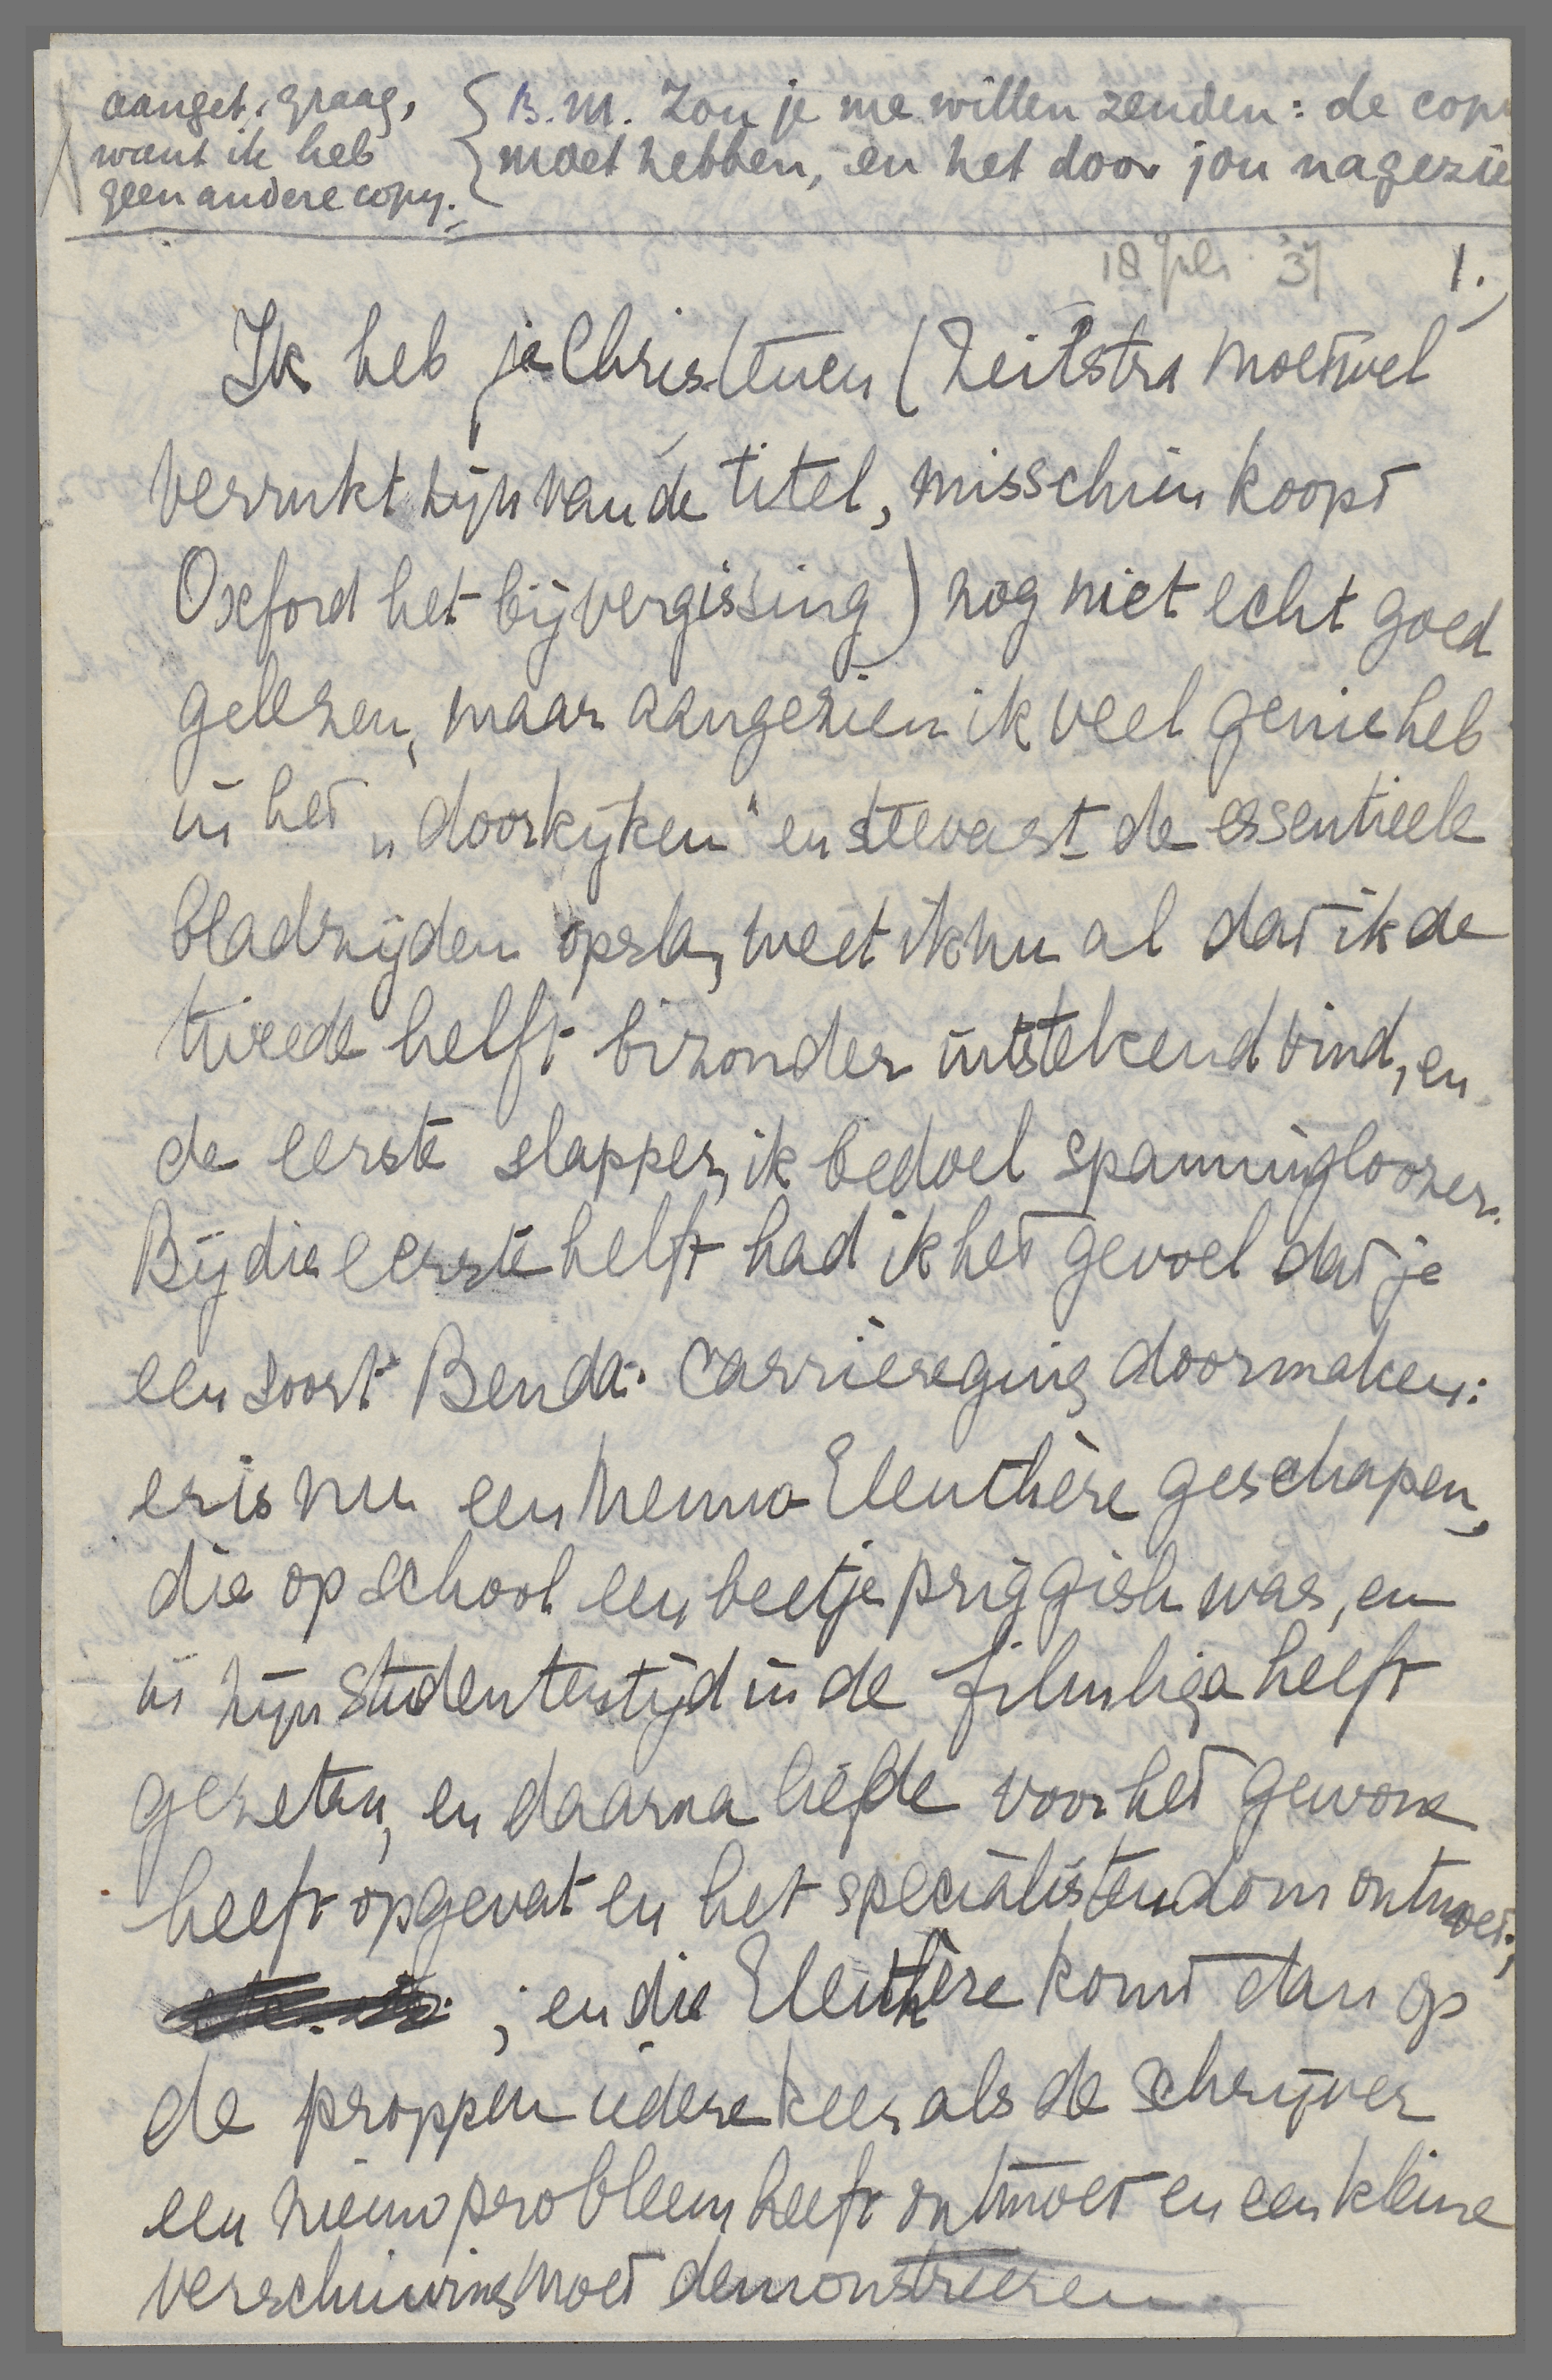 aanget. graag,
want ik heb
geen andere copy.
B.M. Zou je me willen zenden: de cop
moet hebben, en het door jou nagezie
18 Juli '37
1.
Ik heb je Christenen (Zeilstra moet wel
verrukt zijn van de titel, misschien koopt
Oxford het bij vergissing) nog niet echt goed
gelezen, maar aangezien ik veel genie heb
in het „doorkijken" en steevast de essentieele
bladzijden opsla, weet ik nu al dat ik de
tweede helft bizonder uitstekend vind, en
de eerste slapper, ik bedoel spanningloozer.
Bij die eerste helft had ik het gevoel dat je
een soort Benda-carrière ging doormaken:
er is nu een Menno-Eleuthère geschapen,
die op school een beetje priggish was, en
in zijn studententijd in de filmliga heeft
gezeten, en daarna liefde voor het gewone
heeft opgevat en het specialistendom ontmoet;
; en die Eleuthère komt dan op
de proppen iedere keer als de schrijver
een nieuw probleem heeft ontmoet en een kleine
verschuiving moet demonstreeren.